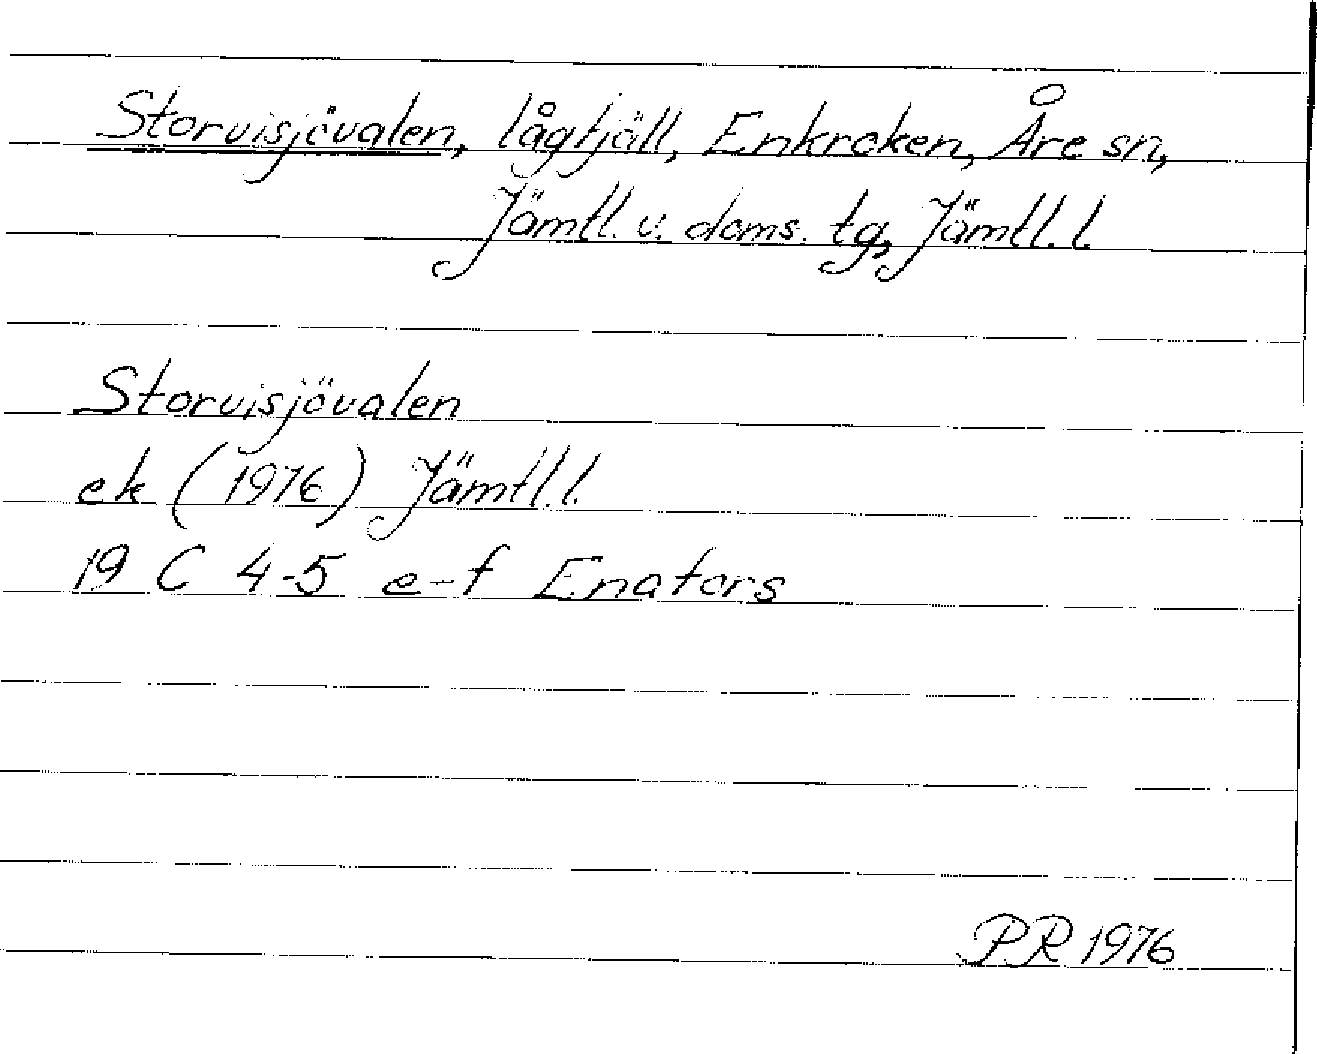 Storvisjövalen, lågfjäll, Enkroken, Åre sn,
Jämtl. v. doms. tg, Jämtl. l.
Storvisjövalen
ek (1976) Jämtl. l.
19 C 4-5 e-f Enafors
PR 1976